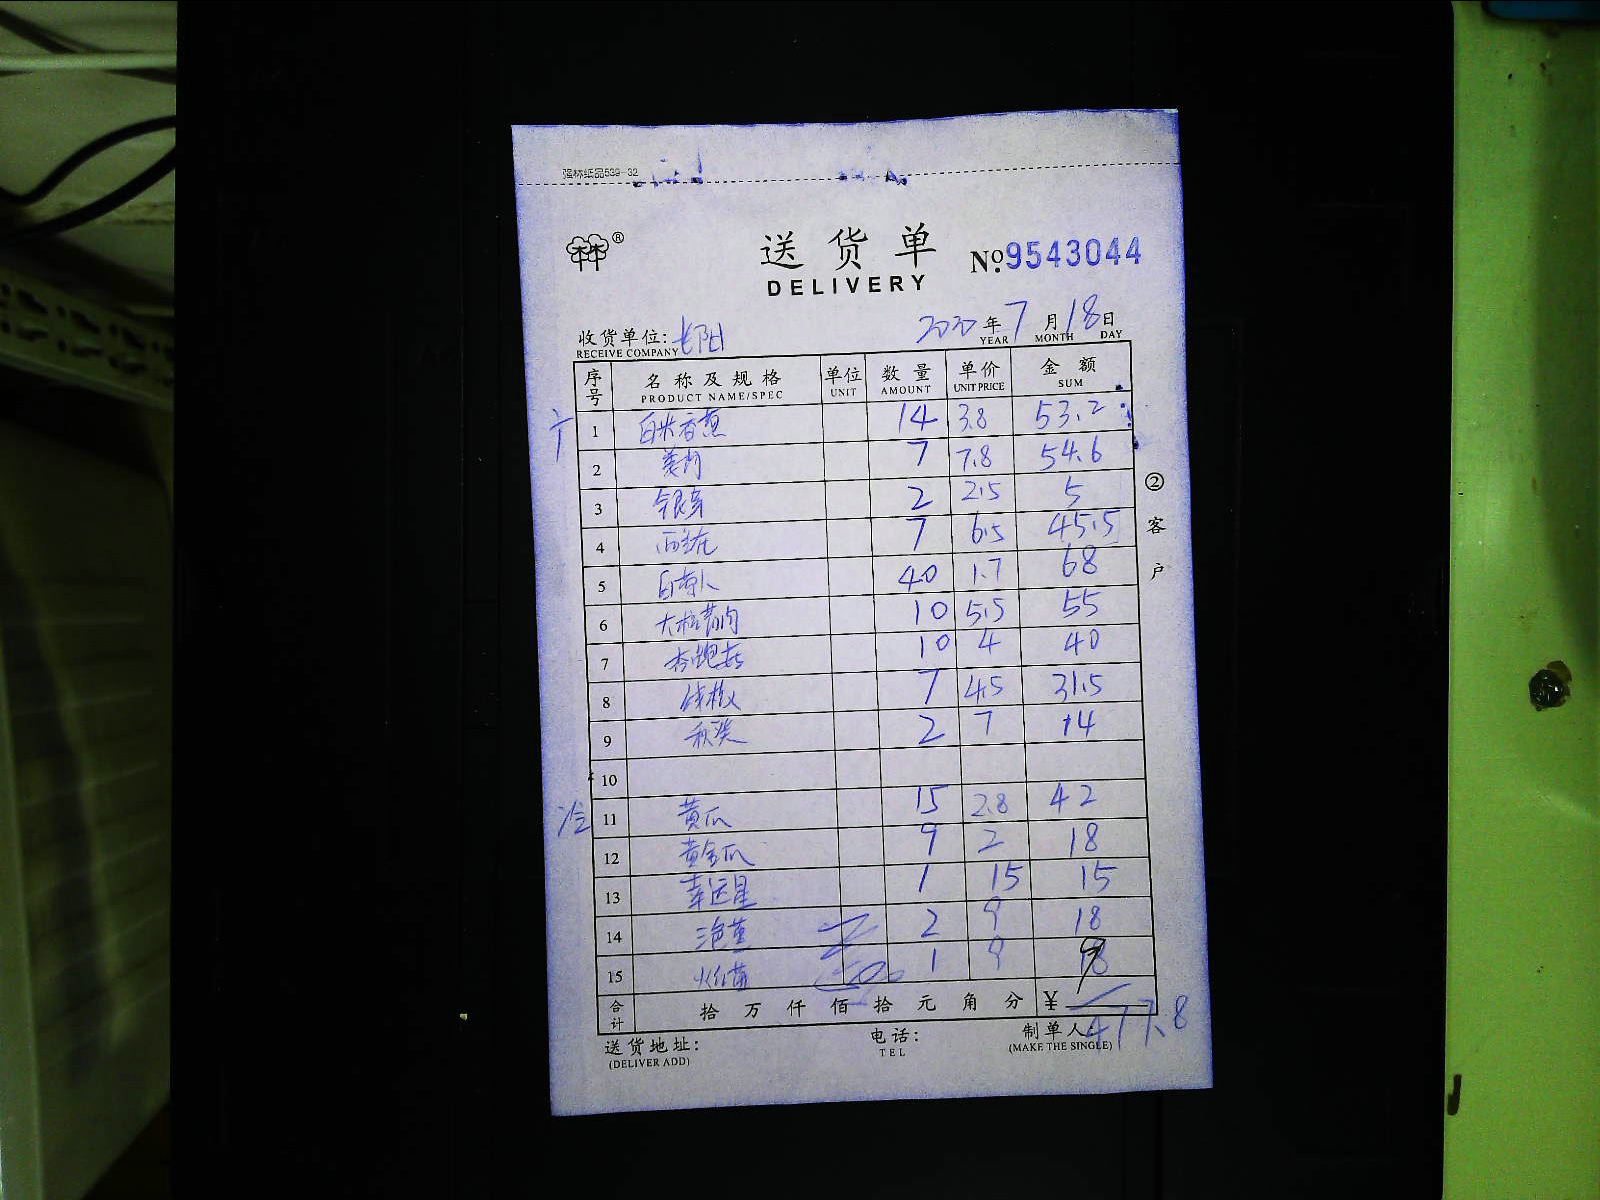 强林纸品539-32
林林®
送货单
DELIVERY
№9543044
收货单位: 长阳 2020年7月18日
RECEIVE COMPANY YEAR MONTH DAY
序号 名称及规格 单位 数量 单价 金额
PRODUCT NAME/SPEC UNIT AMOUNT UNIT PRICE SUM
1 14 3.8 53.2
2 7 7.8 54.6
3 银芽 2 2.5 5
4 7 6.5 45.5
5 40 1.7 68
6 10 5.5 55
7 杏鲍菇 10 4 40
8 7 4.5 31.5
9 秋葵 2 7 14
10
冷 11 黄瓜 15 2.8 42
12 黄金瓜 9 2 18
13 幸运星 1 15 15
14 2 9 18
15 1 9 9
合计 拾万仟佰拾元角分 ¥ 477.8
②客户
送货地址: 电话: 制单人:
(DELIVER ADD) TEL (MAKE THE SINGLE)